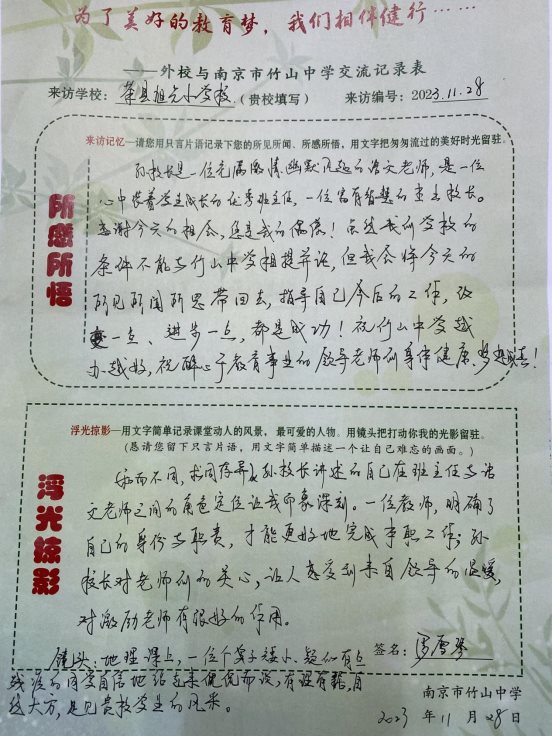 为了美好的教育梦，我们相伴健行……
——外校与南京市竹山中学交流记录表
来访学校：荣县旭光小学校（贵校填写） 来访编号：2023.11.28
来访记忆—请您用只言片语记录下您的所见所闻、所感所悟，用文字把匆匆流过的美好时光留驻。
所感所悟
孙校长是一位充满激情、幽默风趣的语文老师，是一位
心中装着学生成长的优秀班主任，一位富有智慧的 校长。
感谢今天的相会，您是我的偶像！虽然我们学校的
条件不能与竹山中学相提并论，但我会将今天的
所见所闻所思带回去，指导自己今后的工作，改
变一点、进步一点，都是成功！祝竹山中学越
办越好，祝醉心于教育事业的领导老师们身体健康、梦想成真！
浮光掠影—用文字简单记录课堂动人的风景，最可爱的人物。用镜头把打动你我的光影留驻。
（恳请您留下只言片语，用文字简单描述一个让自己难忘的画面。）
浮光掠影
和而不同，求同存异，孙校长讲述的自己在班主任与语
文老师之间的角色定位让我印象深刻。一位教师，明确了
自己的身份与职责，才能更好地完成本职工作；孙
校长对老师们的关心，让人感受到来自领导的温暖，
对激励老师有很好的作用。
镜头：地理课上，一位个子矮小、疑似有点
残疾的同学自信地站起来侃侃而谈，有理有据，自
然大方，足见贵校学生的风采。
签名：
南京市竹山中学
2023 年 11 月 28 日